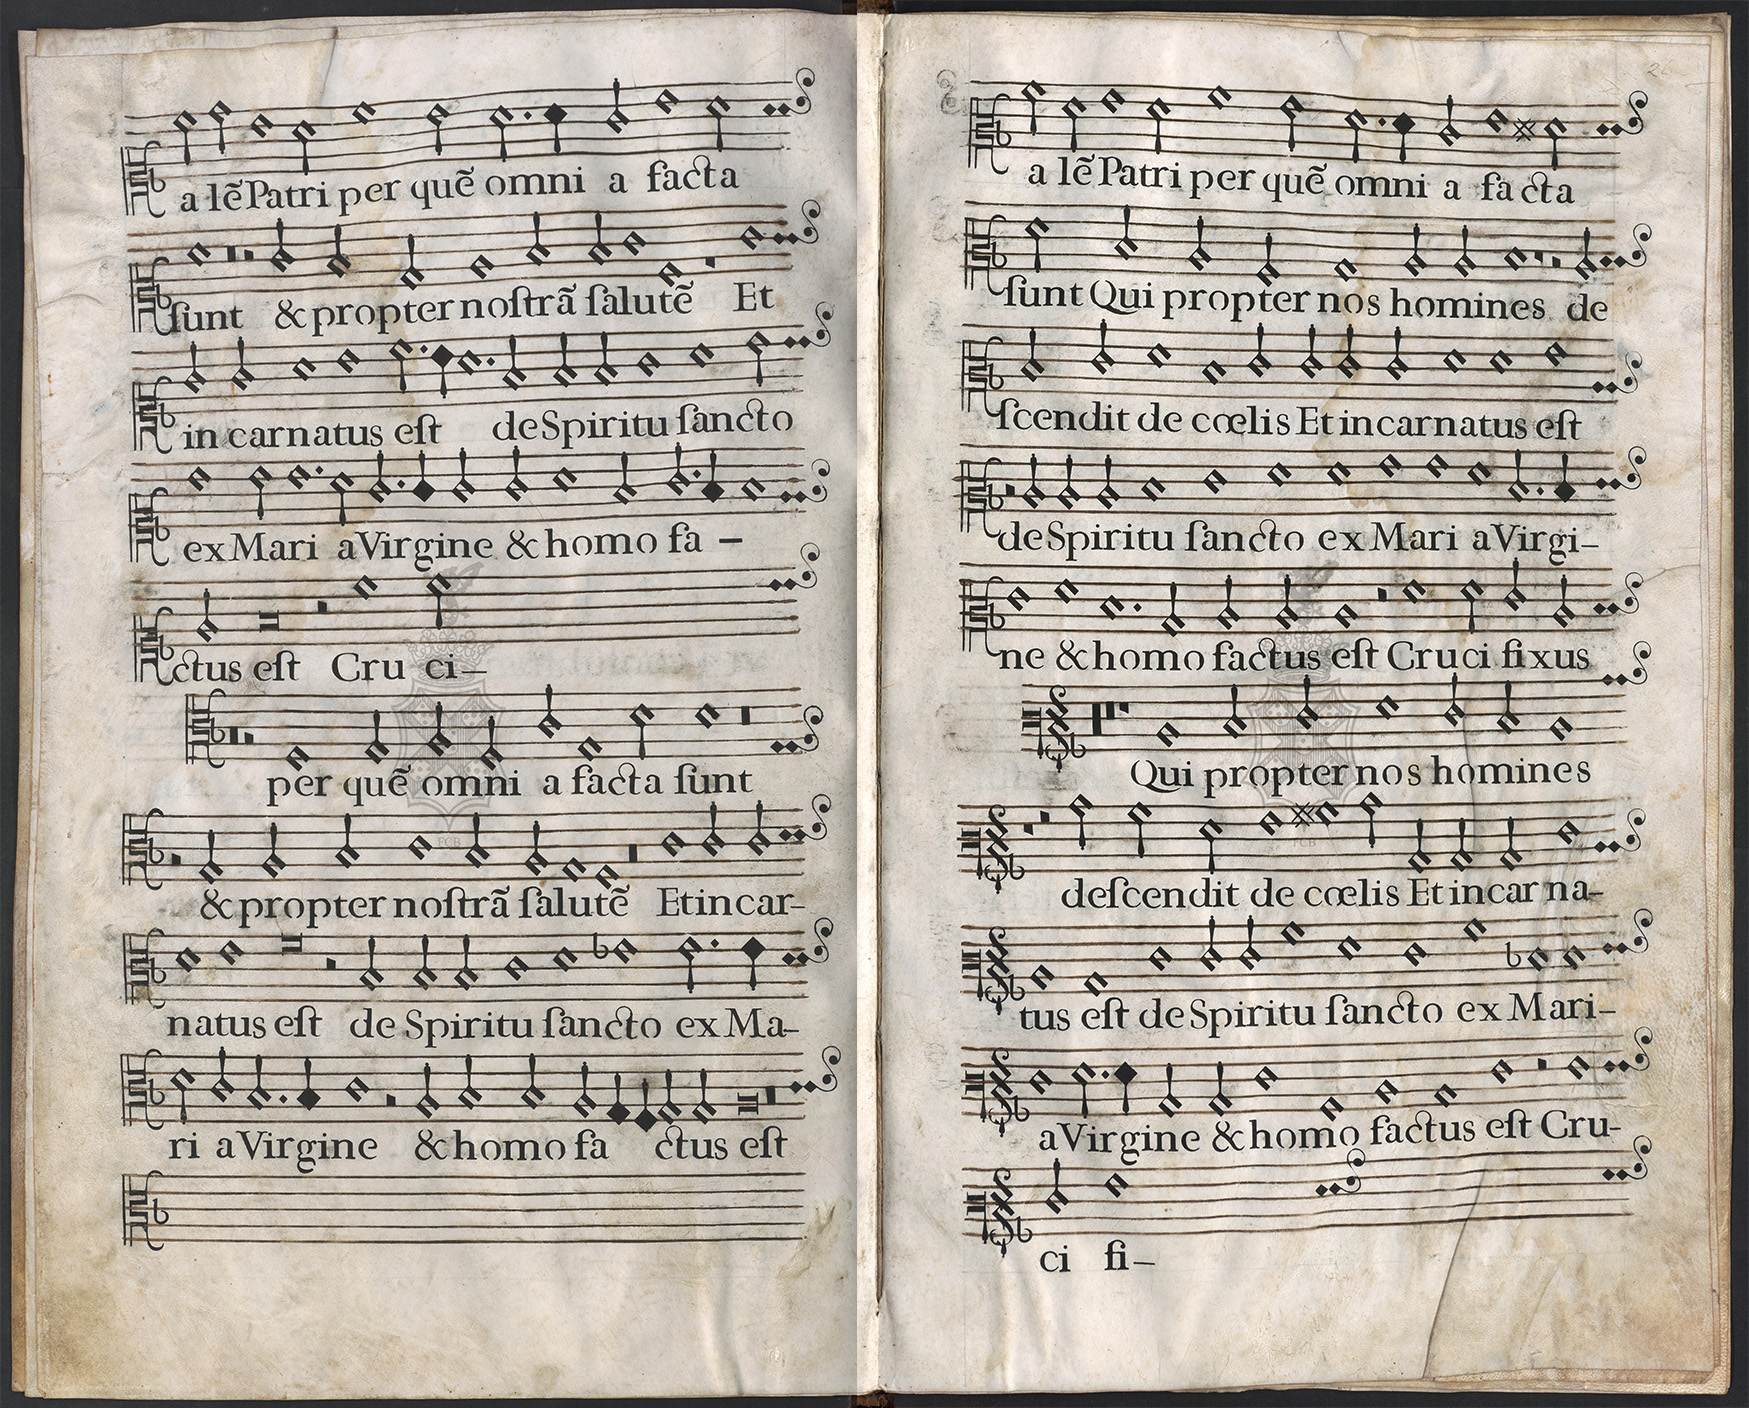 a lẽ Patri per quẽ omni a facta
ſunt & propter noſtrã ſalutẽ Et
in carnatus eſt de Spiritu ſancto
ex Mari a Virgine & homo fa –
ctus eſt Cru ci–
per quẽ omni a facta ſunt
& propter noſtrã ſalutẽ Et incar–
natus eſt de Spiritu ſancto ex Ma–
ri a Virgine & homo fa ctus eſt
a lẽ Patri per quẽ omni a fa cta
ſunt Qui propter nos homines de
ſcendit de cœlis Et incarnatus eſt
de Spiritu ſancto ex Mari a Virgi–
ne & homo factus eſt Cruci fixus
Qui propter nos homines
deſcendit de cœlis Et incar na–
tus eſt de Spiritu ſancto ex Mari–
a Virgine & homo factus eſt Cru–
ci fi–